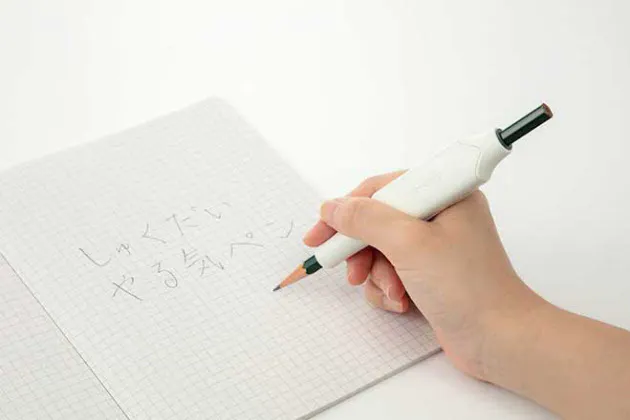 しゅくだい
やる気ペン